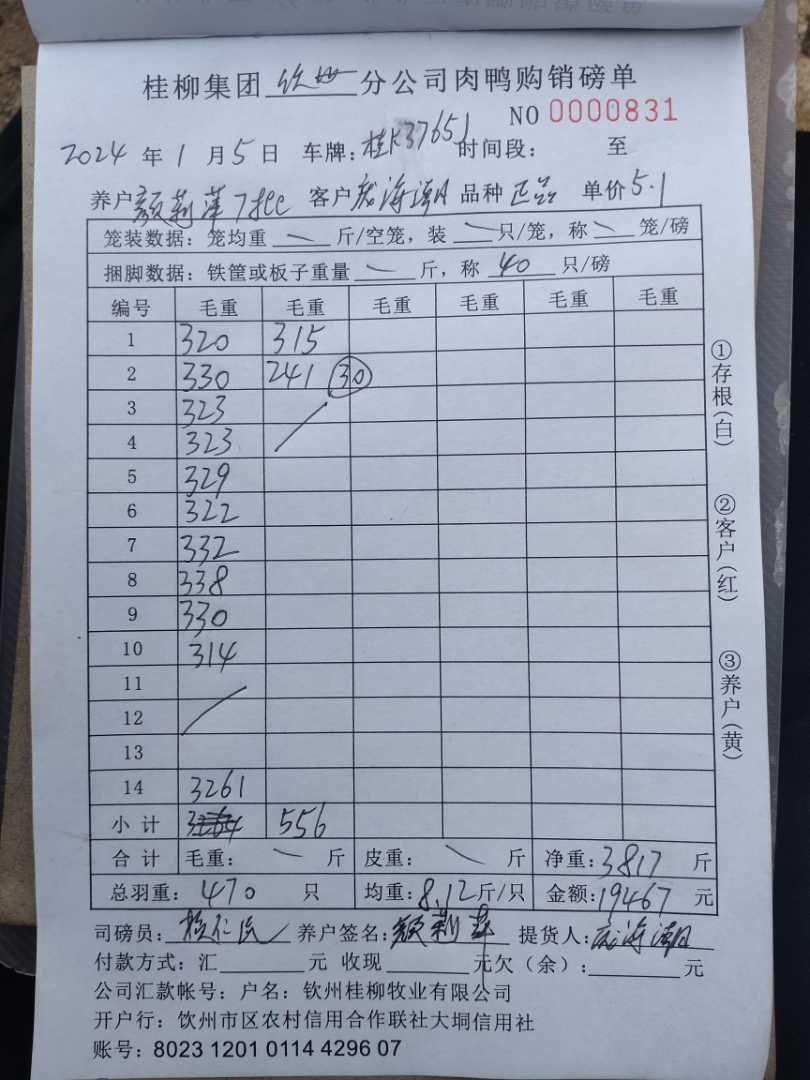 桂柳集团 钦州 分公司肉鸭购销磅单
NO 0000831
2024 年 1 月 5 日 车牌：桂K37651 时间段： 至
养户 颜莉萍 客户 海潮 品种 正品 单价 5.1
笼装数据：笼均重 斤/空笼，装 只/笼，称 笼/磅
捆脚数据：铁筐或板子重量 斤，称 40 只/磅
编号 毛重 毛重 毛重 毛重 毛重 毛重
1 320 315
2 330 241 30
3 323
4 323
5 329
6 322
7 332
8 338
9 330
10 314
11
12
13
14 3261
小计 3264 556
合计 毛重： 斤 皮重： 斤 净重：3817 斤
总羽重：470 只 均重：8.12 斤/只 金额：19467 元
司磅员： 养户签名：颜莉萍 提货人：海潮
付款方式：汇 元 收现 元欠（余）： 元
公司汇款帐号：户名：钦州桂柳牧业有限公司
开户行：饮州市区农村信用合作联社大垌信用社
账号：8023 1201 0114 4296 07
①存根（白）
②客户（红）
③养户（黄）